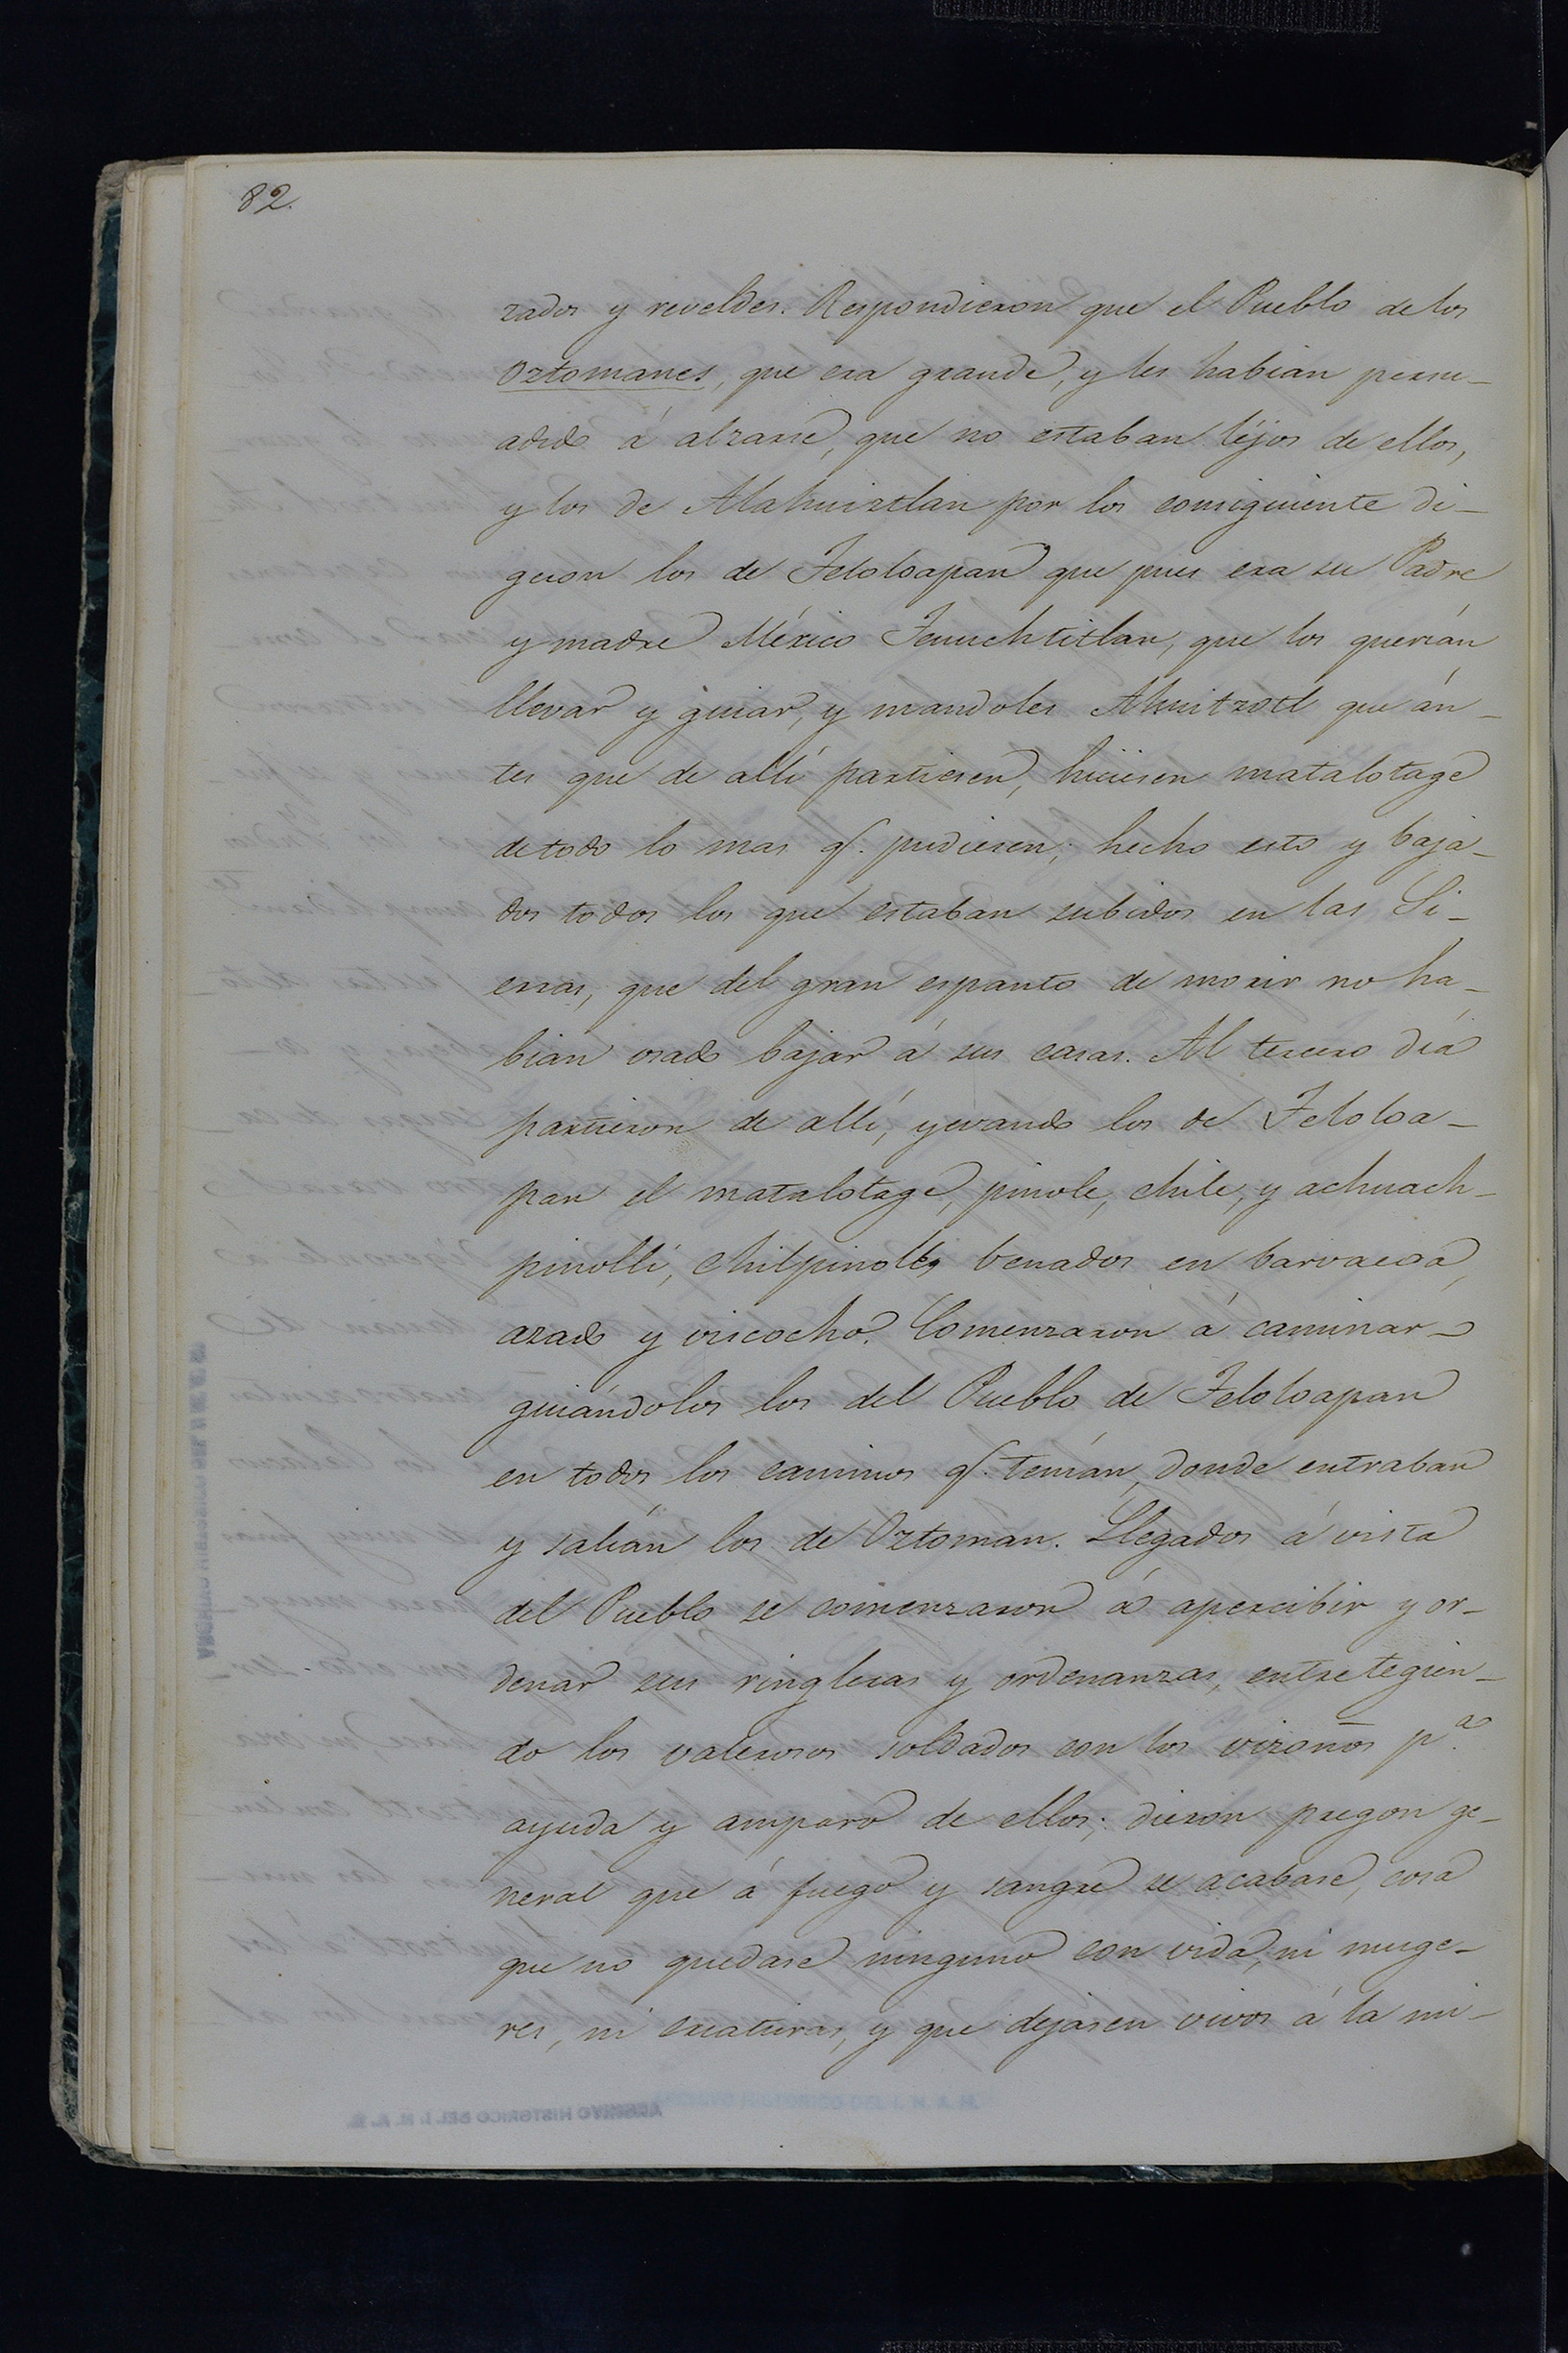 82.
zados y reveldes. Respondieron que el Pueblo de los
Oztomanes, que era grande, y les habian persu-
adido á alzarse, que no estaban léjos de ellos,
y los de Alahuiztlan por los consiguiente di-
geron los de Teloloapan que pues era su Padre
y madre México Tenuchtitlan, que los querián
llevar y guiar, y mandoles Ahuitzotl que án-
tes que de allí partiesen, hiciesen matalotage
de todo lo mas q. pudiesen; hecho esto y baja-
dos todos los que estaban subidos en las Si-
erras, que del gran espanto de morir no ha-
bian osado bajar á sus casas. Al tercero dia
partieron de allí, yevando los de Teloloa-
pan el matalotage, pinole, chile, y achuach-
pinolli, chilpinolli, benados en barvacoa,
azado y viscocho. Comenzaron á caminar
guiándolos los del Pueblo de Teloloapan
en todos los caminos q. tenián, donde entraban
y salián los de Oztoman. Llegados á vista
del Pueblo se comenzaron á apercibir y or-
denar sus ringleras y ordenanzas, entretegien-
do los valerosos soldados con los vizoños p.ª
ayuda y amparo de ellos; dieron pregon ge-
neral que á fuego y sangre se acabase, cosa
que no quedase ninguno con vida, ni muge-
res, ni criaturas, y que dejasen vivos á la mi-
ARCHIVO HISTORICO DEL I. N. A. H.